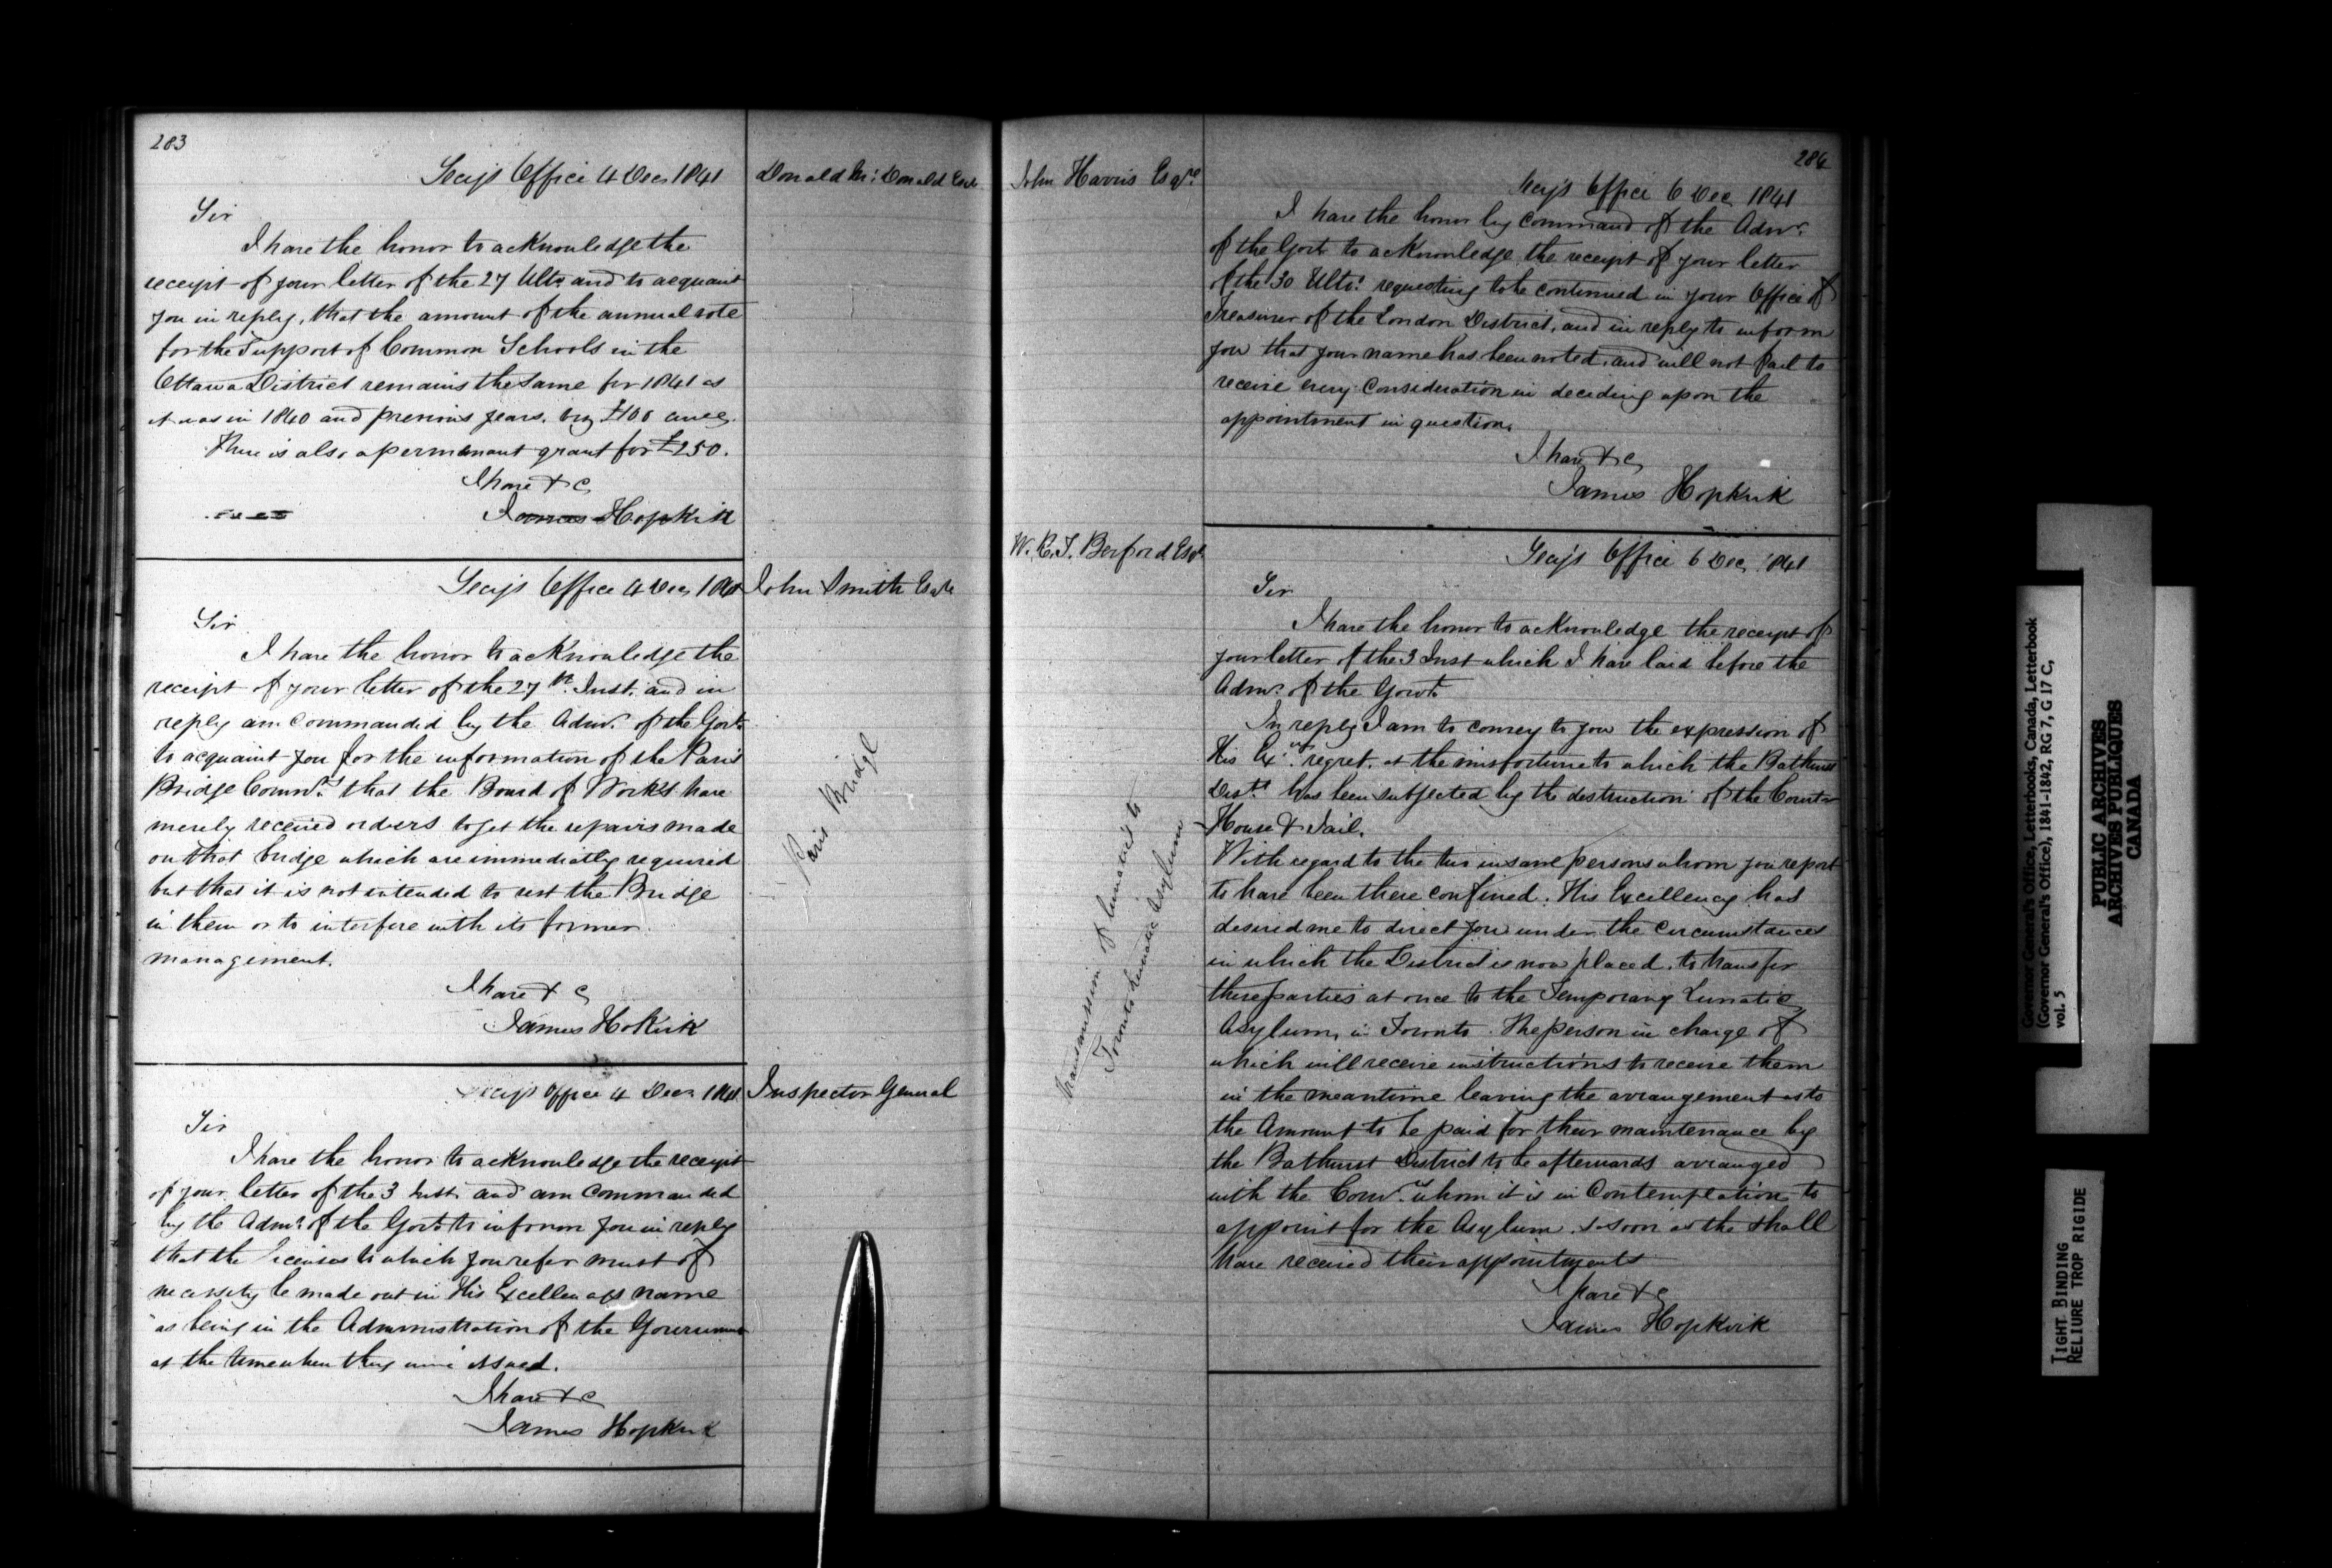 283
Secy's Office 4 Dec 1841
Donald Mc Donald Esqre
Sir
I have the honor to acknowledge the
receipt of your letter of the 27 Ulto and to acquaint
you in reply, that the amount of the annual vote
for the Support of Common Schools in the
Ottawa District remains the same for 1841 as
it was in 1840 and previous years. viz £100
There is also a permanant grant for £250.
I have & c
James Hopkirk
Secy's Office 4 Dec 1841
John Smith Esqre
Sir
I have the honor to acknowledge the
receipt of your letter of the 27th Inst. and in
reply am commanded by the Admr. of the Govt
to acquaint you for the information of the Paris
Bridge Comrs. that the Board of Works have
merely received orders to get the repairs made
on that bridge which are immediatly required
but that it is not intended to vest the Bridge
in them or to interfere with its former
management.
I have & c
James Hokirk
Paris Bridge
Secys Office 4 Decr 1841
Inspector General
Sir
I have the honor to acknowledge the receipt
of your letter of the 3 Inst. and am commanded
by the Admr. of the Govt. to inform you in reply
that the Licenses to which you refer must of
necessity be made out in His Excellencys name
as being in the Administration of the Government
at the time when they were issued.
I have & c
James Hopkirk
284
John Harris Esqre
Secy's Office 6 Dec 1841
I have the honor by command of the Admr.
of the Govt to acknowledge the receipt of your letter
of the 30 Ulto. requesting to be continued in your Office of
Treasurer of the London District, and in reply to inform
you that your name has been noted, and will not fail to
receive every consideration in deciding upon the
appointment in question.
I have & c
James Hopkirk
W. R. F. Berford Esqr
Secy's Office 6 Dec 1841
Sir
I have the honor to acknowledge the receipt of
your letter of the 3 Inst which I have laid before the
Admr. of the Govt.
In reply I am to convey to you the expression of
His Excys. regret, at the misfortune to which the Bathurst
Distt has been subjected by the destruction of the Court
House & Jail.
With regard to the two insane persons whom you report
to have been there confined. His Excellency has
desired me to direct you under the circumstances
in which the District is now placed, to transfer
these parties at once to the Temporary Lunatic
Asylum, in Toronto. The person in charge of
which will receive instructions to receive them
in the meantime leaving the arrangement as to
the Amount to be paid for their maintenance by
the Bathurst District to be afterwards arranged
with the Comrs. whom it is in Contemplation to
appoint for the Asylum. so soon as the shall
have received their appointments
I have & c
James Hopkirk
Transmission of lunatics to
Toronto Lunatic Asylum
Governor General's Office, Letterbooks, Canada, Letterbook
(Governor General's Office), 1841-1842, RG 7, G 17 C,
vol. 5
PUBLIC ARCHIVES
ARCHIVES PUBLIQUES
CANADA
TIGHT BINDING
RELIURE TROP RIGIDE